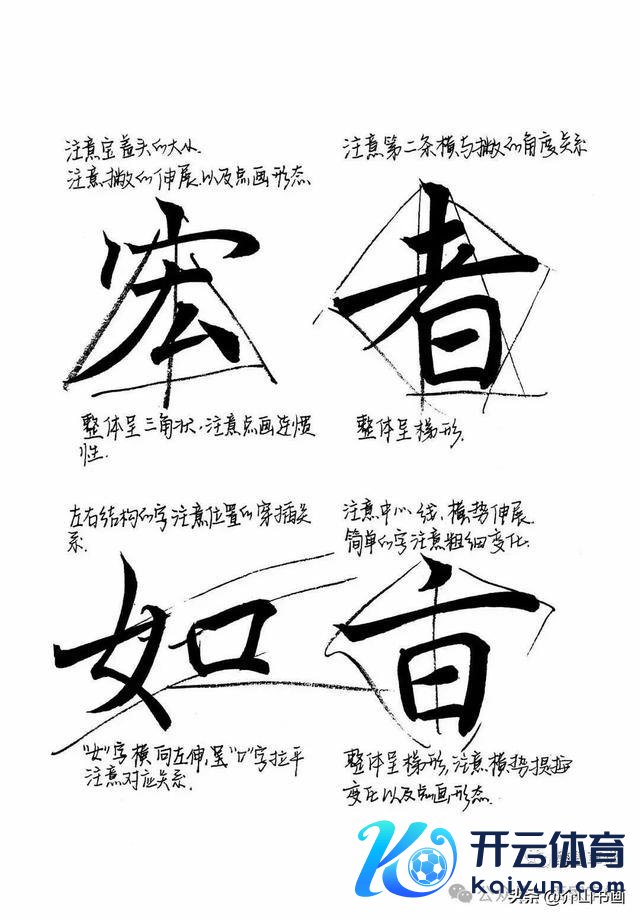 注意宝盖头的大小.
注意撇的伸展以及点画形态.
宏
整体呈三角状,注意点画连惯
性.
注意第二条横与撇的角度关系
者
整体呈梯形.
左右结构的字注意位置的穿插关
系.
如
"女"字横向左伸,呈"口"字拉平
注意对应关系.
注意中心线,横势伸展.
简单的字注意粗细变化.
亘
整体呈梯形,注意横势提按
变化以及点画形态.
开云体育
kaiyun.com
头条@介山书画